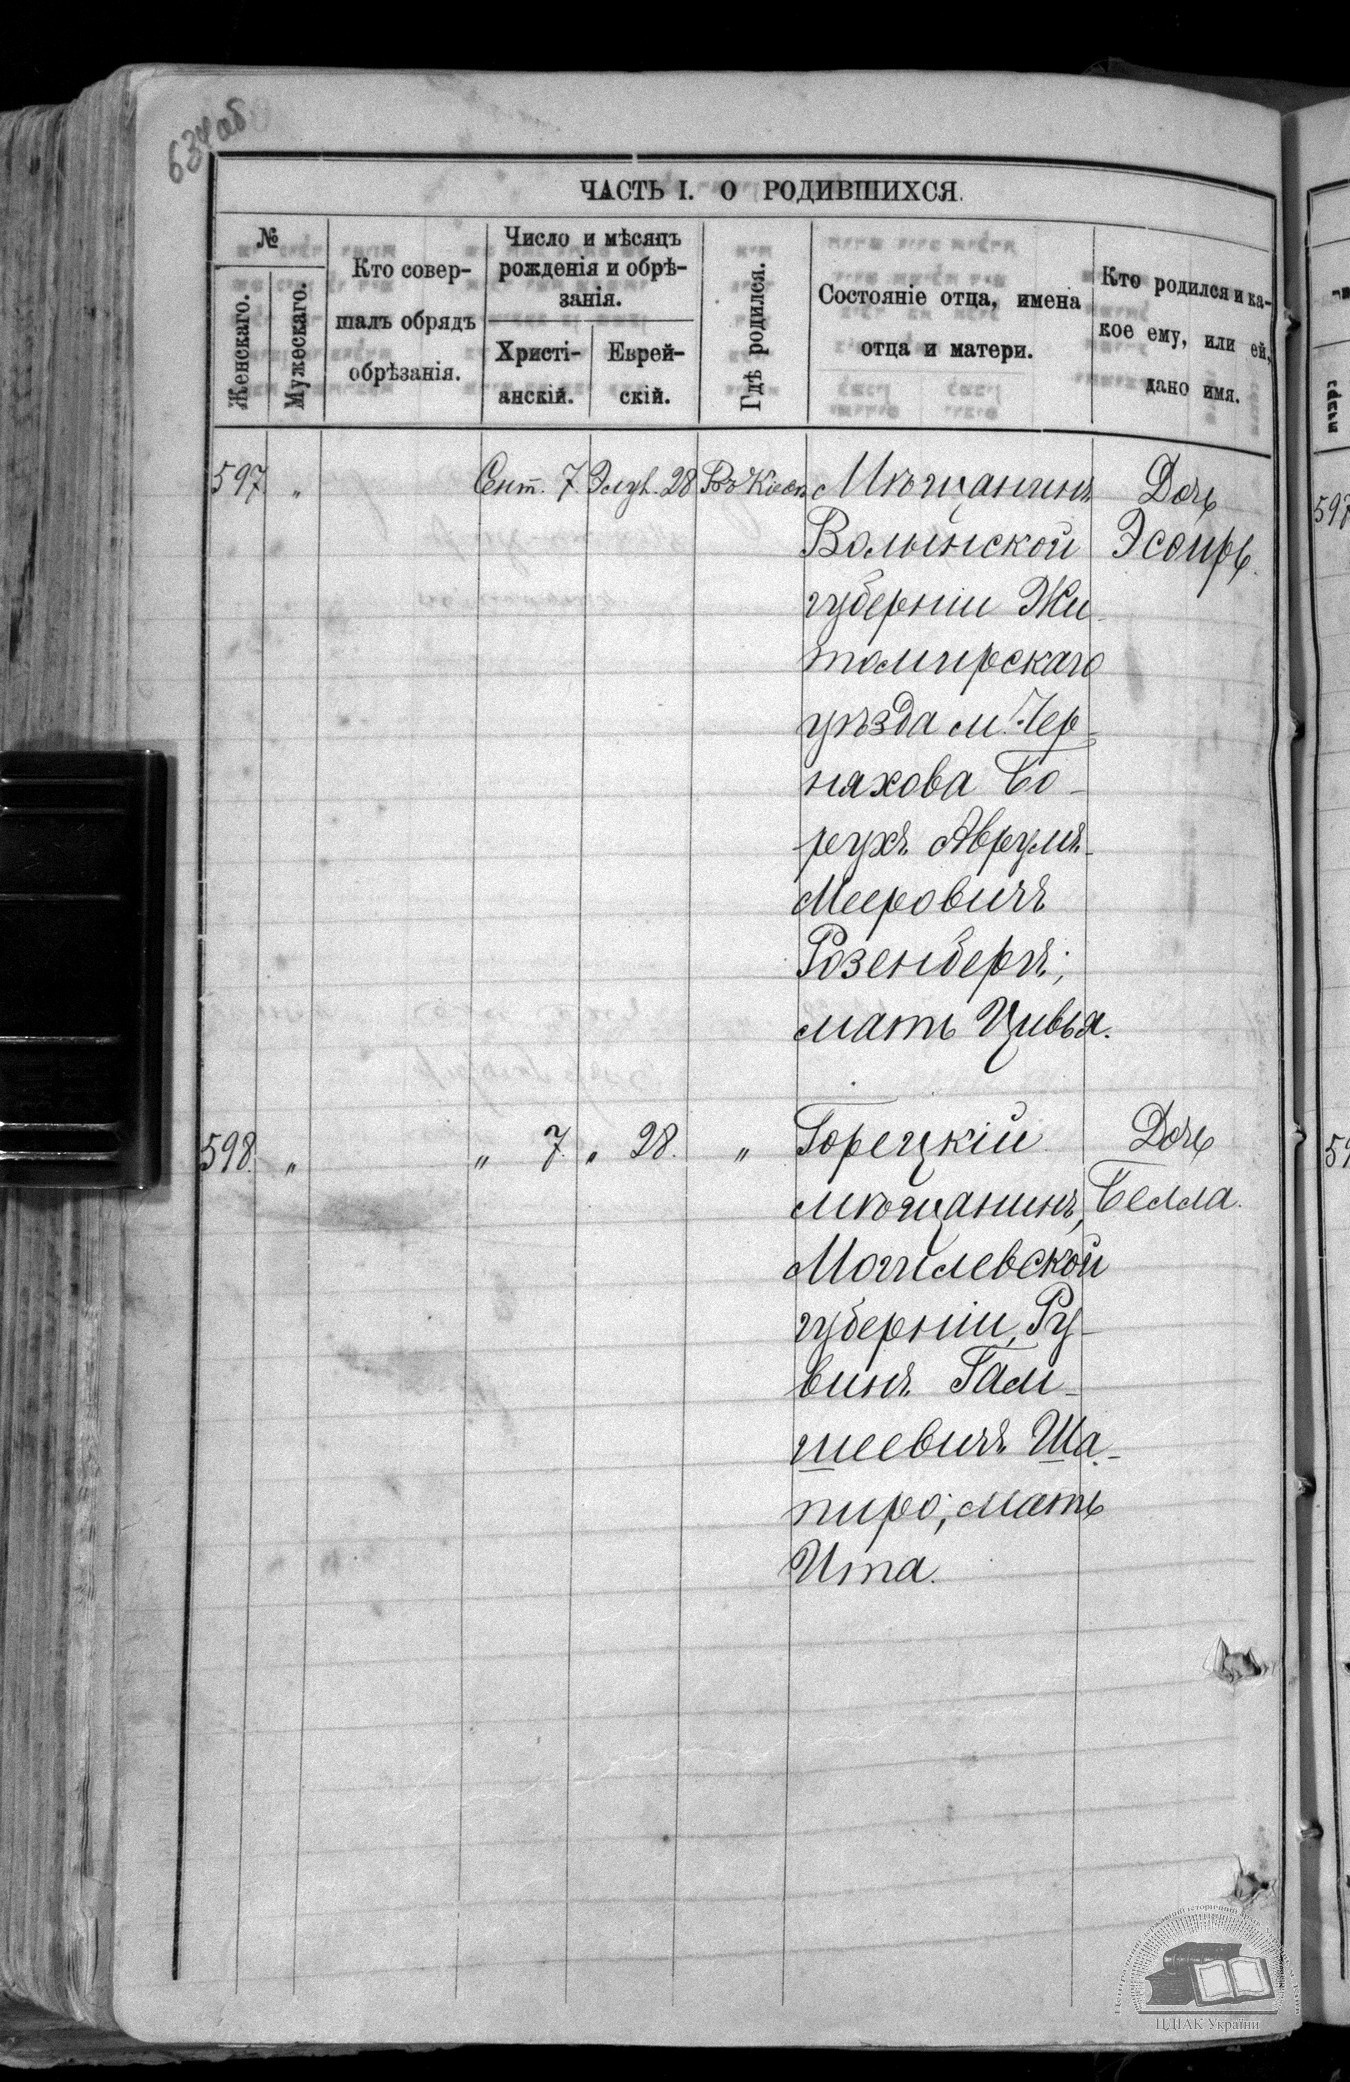 634 об
ЧАСТЬ I. О РОДИВШИХСЯ.
№
Женскаго.
Мужескаго.
Кто совер-
шалъ обрядъ
обрѣзанія.
Число и мѣсяцъ
рожденія и обрѣ-
занія.
Христі-
анскій.
Еврей-
скій.
Гдѣ родился.
Состояніе отца, имена
отца и матери.
Кто родился и ка-
кое ему, или ей,
дано имя.
597 " Сент. 7. Элул. 28 Въ Кіевѣ Мѣщанинъ Дочь
Волынской Эсѳирь.
губерніи Жи-
томирскаго
уѣзда м. Чер-
няхова Бо-
рухъ Аврумъ-
Мееровичъ
Розенбергъ;
мать Цивья.
598. " " 7. " 28. " Горецкій Дочь
мѣщанинъ, Белла.
Могилевской
губерніи, Ру-
винъ Гам-
шеевичъ Ша-
пиро; мать
Ита.
597
59
ЦДІАК України